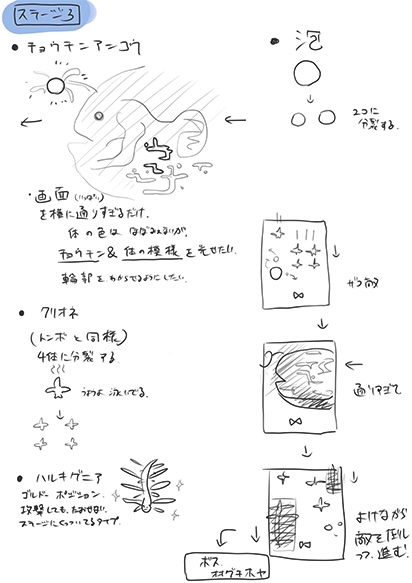 ステージ3
● チョウチンアンコウ
・画面(いっぱい)
を横に通りすぎるだけ。
体の色はほぼみえないが、
チョウチン&体の模様を光せたい。
輪郭をわからせるようにしたい。
● クリオネ
(トンボと同様)
4体に分裂する。
うようよ泳いでる。
● ハルキゲニア
ゴルドーポジション。
攻撃しても、たおせない。
ステージにくっついてるタイプ。
● 泡
2コに
分裂する。
ザコ敵
通りすぎて
よけながら
敵を圧し
って、進む。
ボス
オオグチボヤ